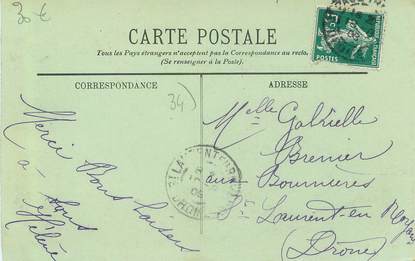 30 €
CARTE POSTALE
Tous les Pays étrangers n'acceptent pas la Correspondance au recto.
(Se renseigner à la Poste).
CORRESPONDANCE
ADRESSE
34)
Merci Bons baisers
à tous
Hélène
Melle Gabrielle
Brenier
Bournières
St Laurent-en Royans
(Drôme)